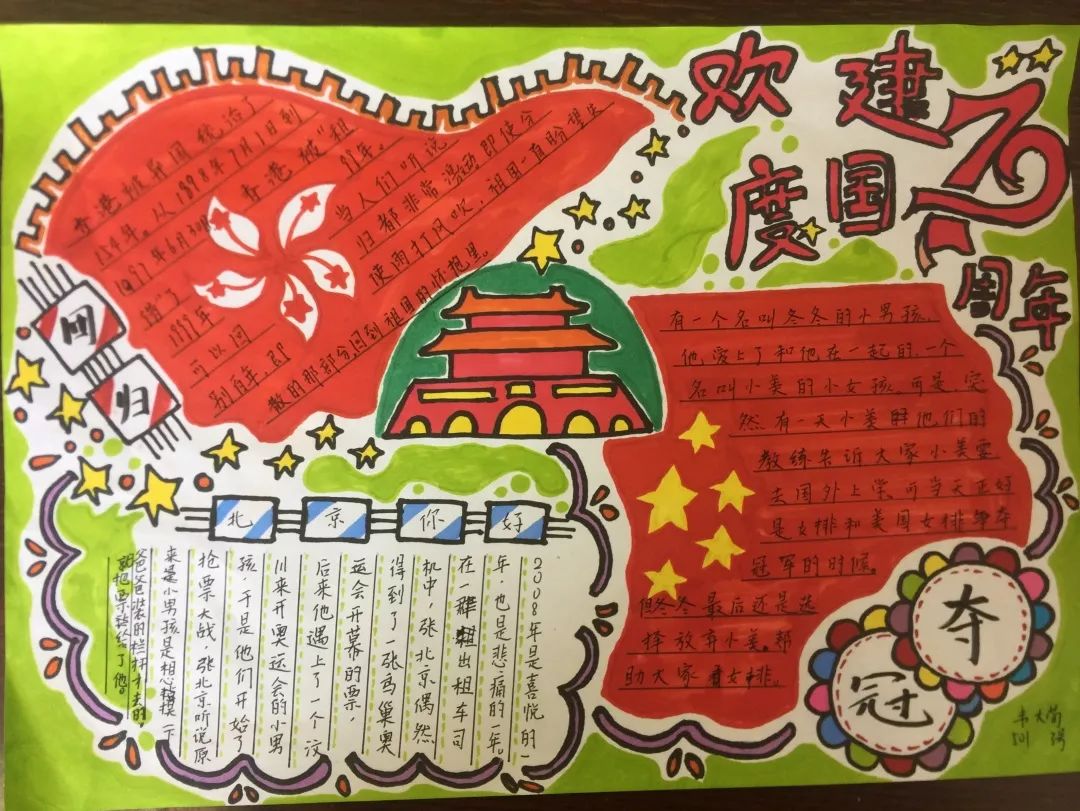 欢度
建国
70
周年
香港被异国统治了
154年。从1898年7月1日到
1997年6月30日 香港被“租
借”了 99年。
1999年 当人们听说
可以回 归都非常激动即使分
别百年,即 使雨打风吹,祖国一直盼望失
散的那部分,回到祖国的怀抱里。
回
归
有一个名叫冬冬的小男孩,
他爱上了和他在一起的,一个
名叫小美的小女孩,可是突
然有一天小美 他们的
教练告诉大家小美要
去国外上学,可当天正好
是女排和美国女排争夺
冠军的时候。
但冬冬最后还是选
择放弃小美,帮
助大家看女排。
夺
冠
北京你好
2008年是喜悦的一
年,也是悲痛的一年。
在一群 出租车司
机中,张北京偶然
得到了一张鸟巢奥
运会开幕的票,
后来他遇上了一个汶
川来开奥运会的小男
孩,于是他们开始了
抢票大战,张北京听说原
来是小男孩是相心 摸一下
爸爸装的栏杆才去的
就把票转给了他。
501